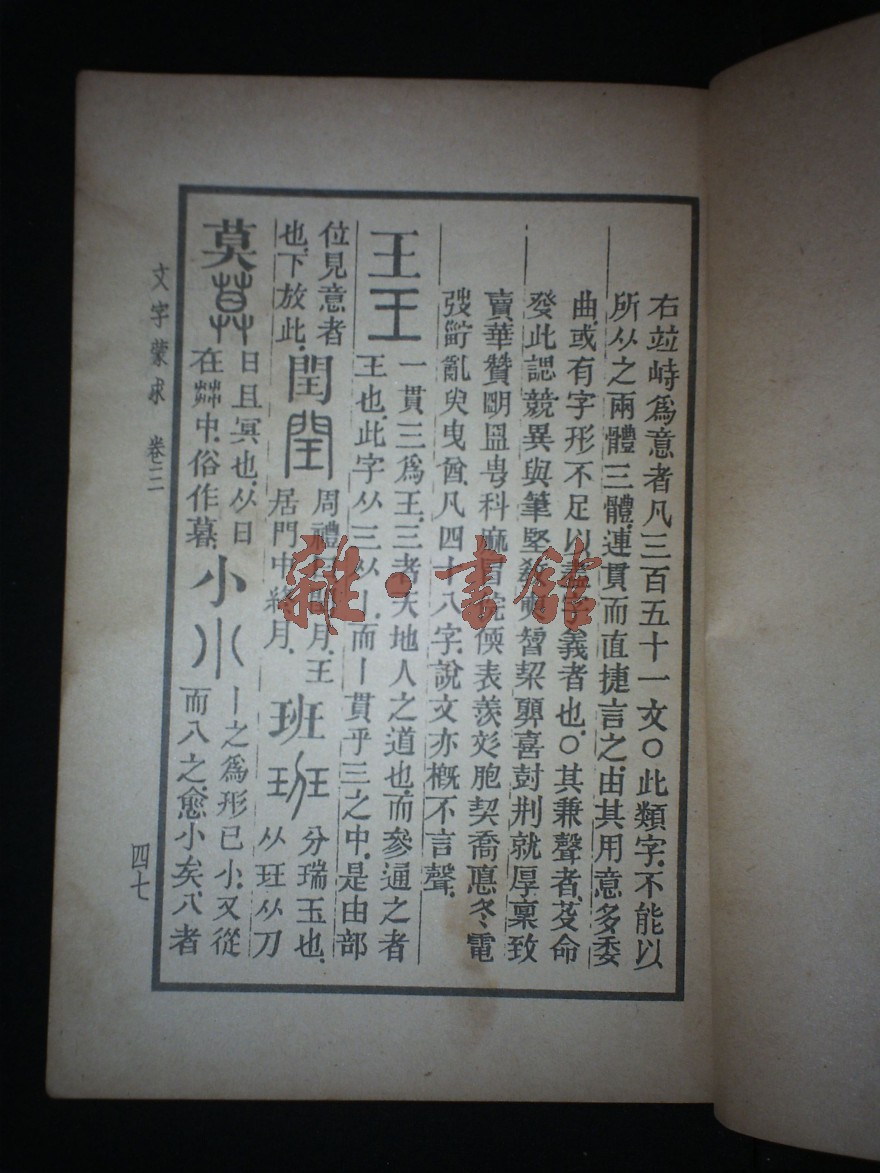 右竝峙爲意者凡三百五十一文○此類字不能以
所从之兩體三體連貫而直捷言之由其用意多委
曲或有字形不足以盡字義者也○其兼聲者芟命
發此認競異與筆堅
喜封荆就厚稟致
賣華贊
科麻
表羨
胞契喬
冬電
亂臾曳酋凡四十八字說文亦槪不言聲
王王
一貫三爲王三者天地人之道也而參通之者
王也此字从三从丨而丨貫乎三之中是由部
位見意者
也下放此
閏閏
周禮
月王
居門中終月
班班
分瑞玉也
从玨从刀
莫莫
日且冥也从日
在茻中俗作暮
小小
丨之爲形已小又從
而八之愈小矣八者
文字蒙求 卷三
四七
雜·書館